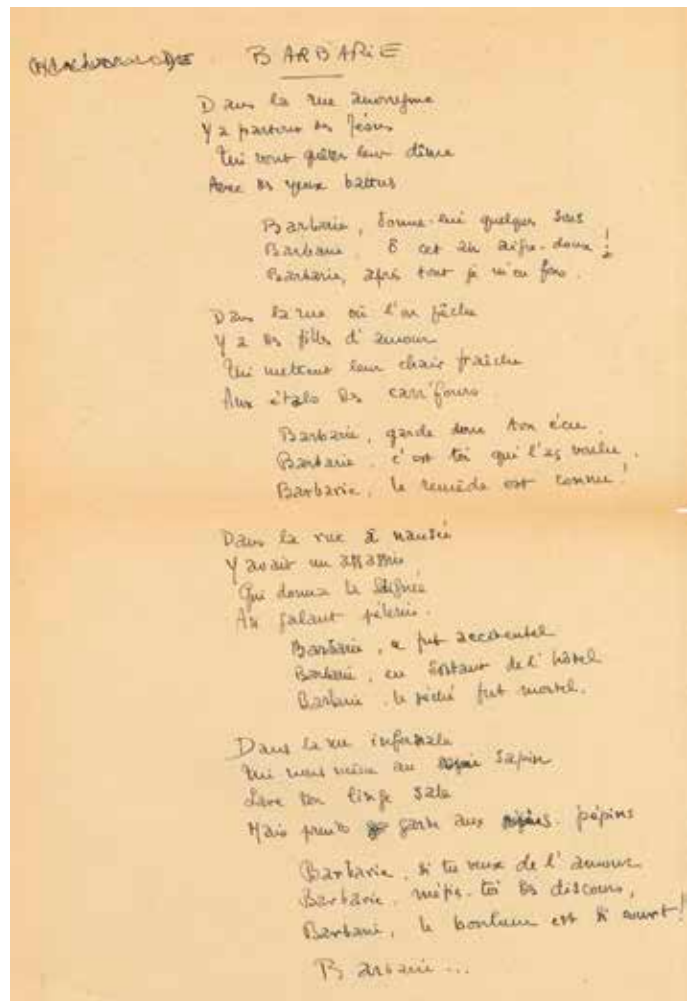 BARBARIE
Dans la rue anonyme
Y a partout des Jésus
Qui vont quêter leur dîme
Avec des yeux battus
Barbarie, donne-lui quelques sous
Barbarie, à cet air aigre-doux !
Barbarie, après tout je m'en fous.
Dans la rue où l'on pêche
Y a des filles d'amour
Qui mettent leur chair fraîche
Aux étals des carr'fours
Barbarie, garde donc ton écu.
Barbarie, c'est toi qui l'as voulu.
Barbarie, le remède est connu !
Dans la rue à nausée
Y avait un assassin
Qui donna la saignée
Au galant pèlerin.
Barbarie, ce fut accidentel
Barbarie, en sortant de l'hôtel
Barbarie, le péché fut mortel.
Dans la rue infernale
Qui nous mène au sapin
Lave ton linge sale
Mais prends garde aux pépins
Barbarie, si tu veux de l'amour
Barbarie, méfie-toi des discours,
Barbarie, le bonheur est si court !
Barbarie...